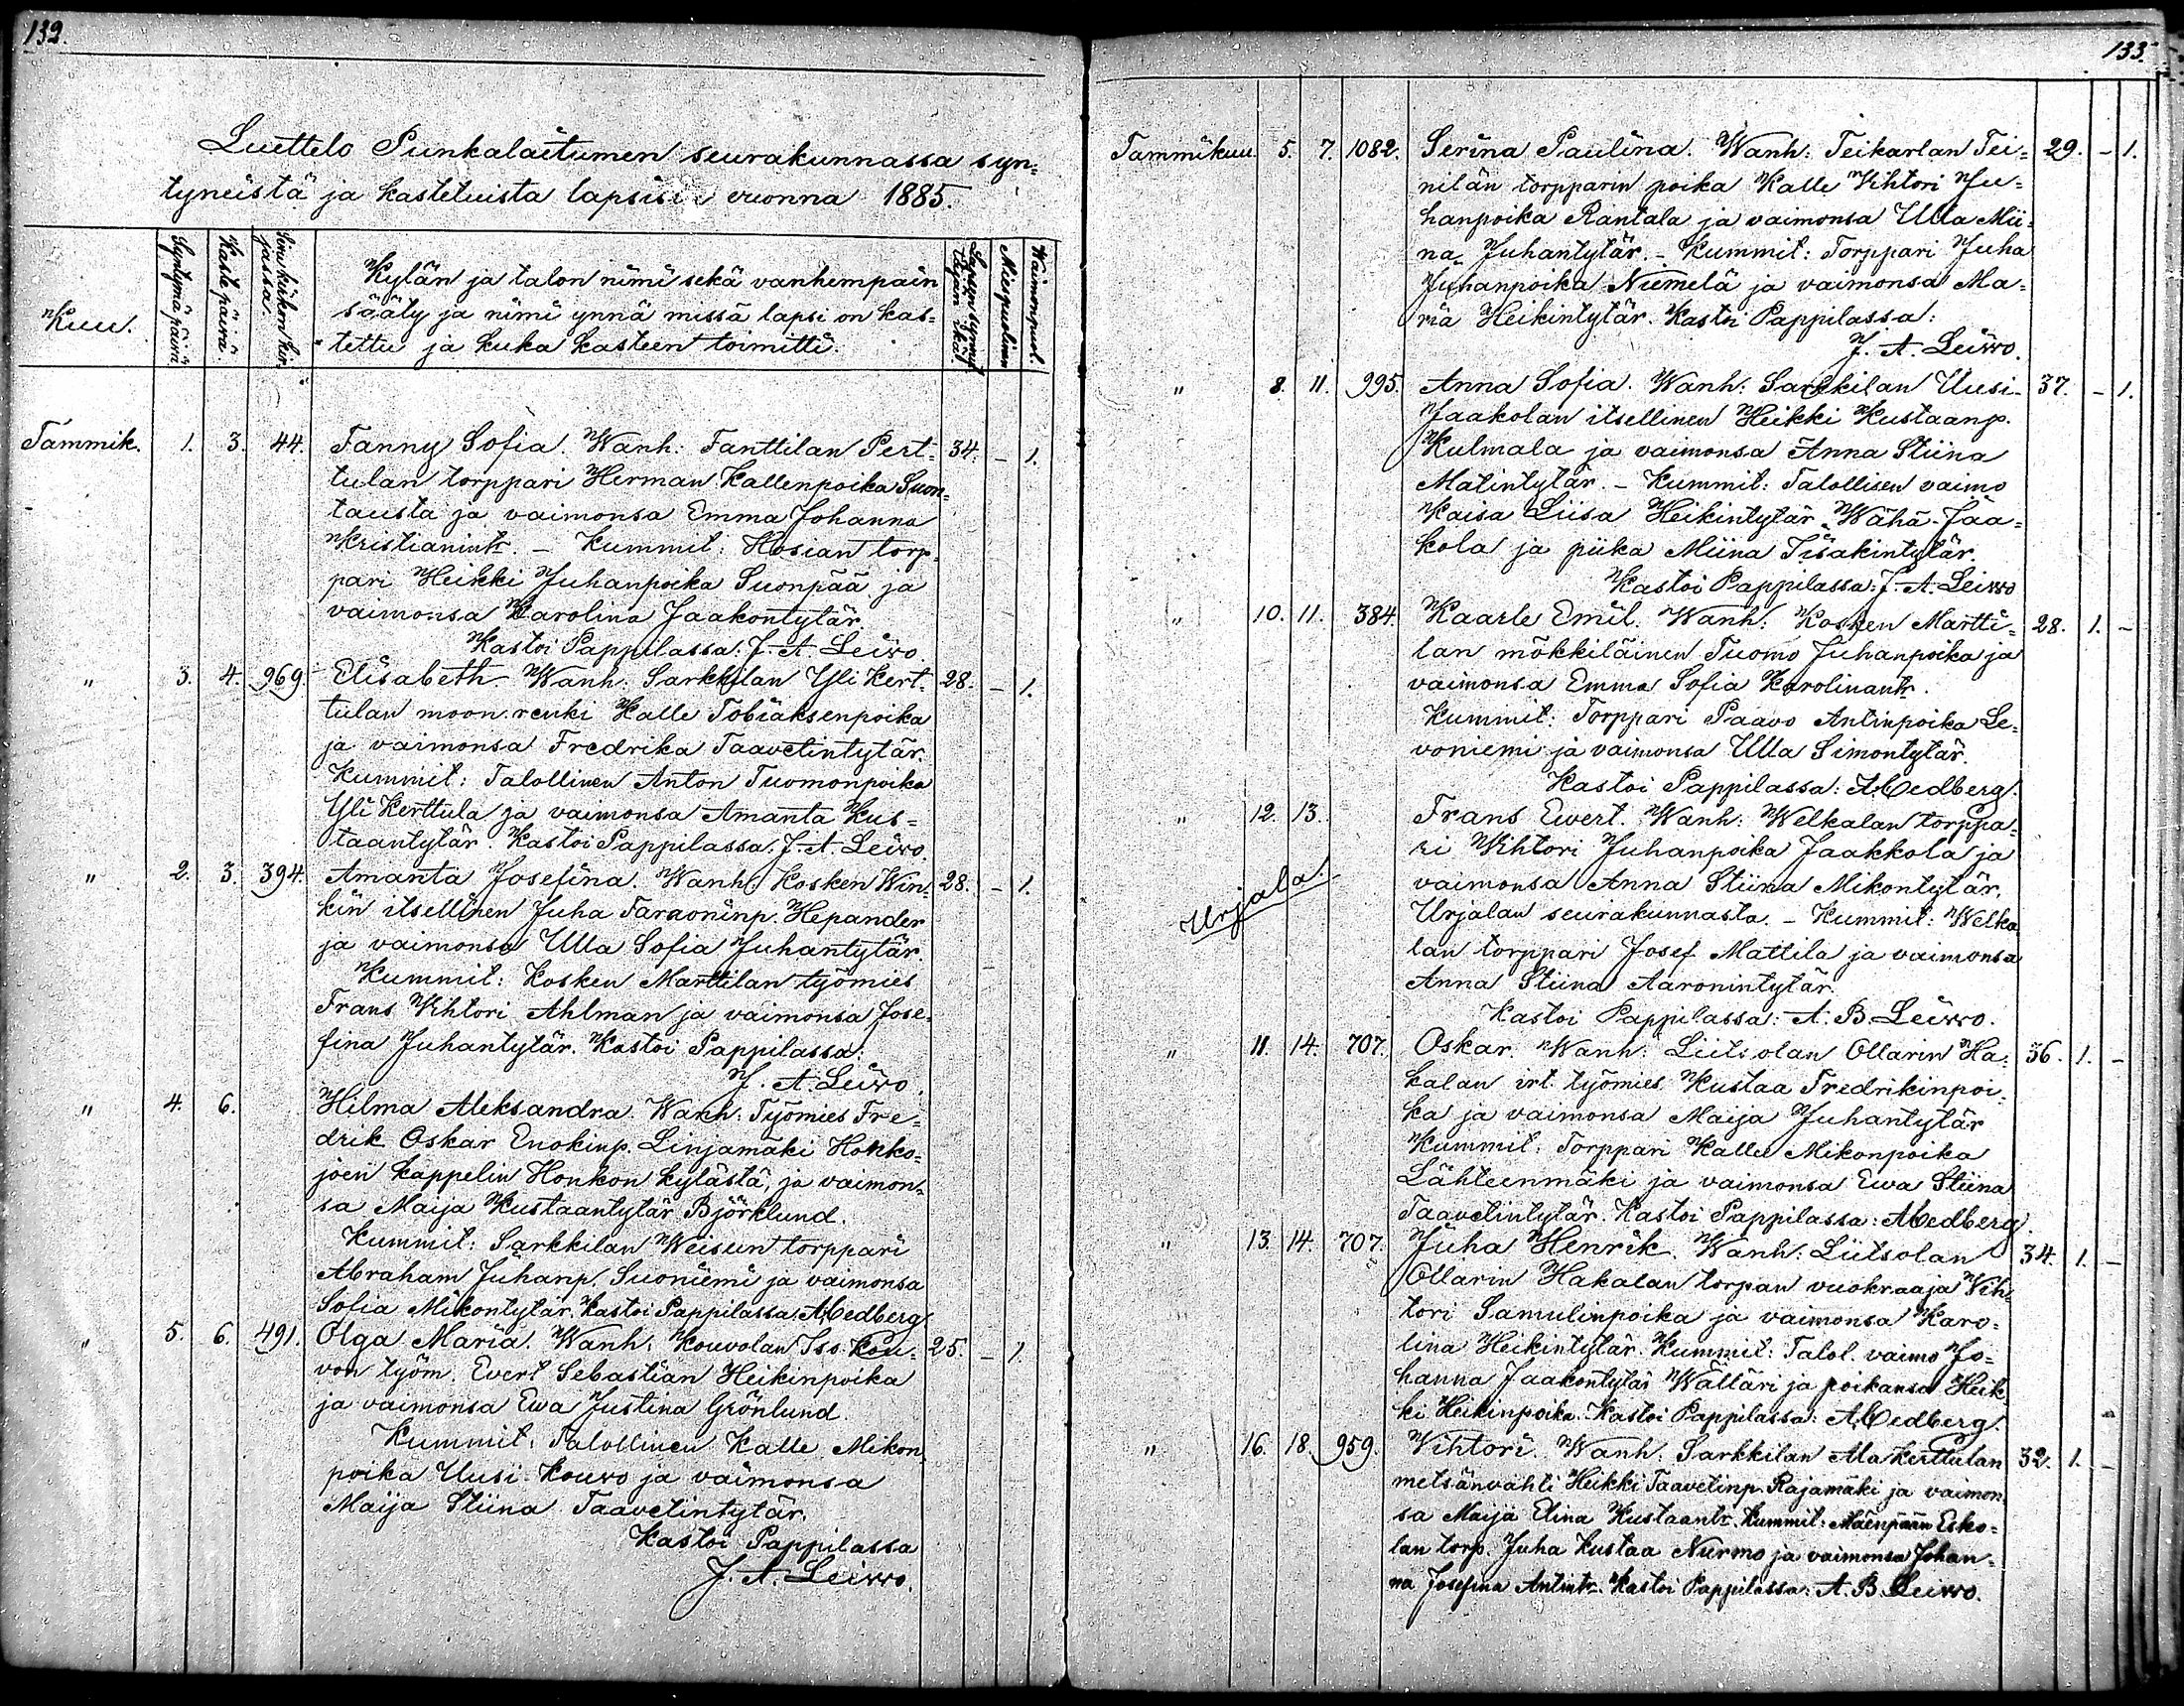 132.
Luettelo Punkalaitumen seurakunnassa syn=
tyneistä ja kastetuista lapsista vuonna 1885.
Kuu.
Syntymä päivä
Kaste päivä
Sivu kirkon kir-
jassa.
Kylän ja talon nimi sekä vanhempain
sääty ja nimi ynnä missä lapsi on kas=
tettu ja kuka kasteen toimitti.
Lapsen synnyt-
täjän ikä.
Miespuolinen
Waimonpuol.
Tammik. 1. 3. 44. Fanny Sofia. Wanh: Fanttilan Pert= 34. – 1.
tulan torppari Herman Kallenpoika Suon=
tausta ja vaimonsa Emma Johanna
Kristianintr. – Kummit: Hosian torp=
pari Heikki Juhanpoika Suonpää ja
vaimonsa Karolina Jaakontytär.
Kastoi Pappilassa: J. A. Leivo.
" 3. 4. 969. Elisabeth. Wanh: Sarkkilan Yli Kert= 28. – 1.
tulan moon.renki Kalle Tobiaksenpoika
ja vaimonsa Fredrika Taavetintytär.
Kummit: Talollinen Anton Tuomonpoika
Yli Kerttula ja vaimonsa Amanta Kus=
taantytär. Kastoi Pappilassa: J. A. Leivo.
" 2. 3. 394. Amanta Josefina. Wanh: Kosken Win= 28. – 1.
kin itsellinen Juha Faraoninp. Hepander
ja vaimonsa Ulla Sofia Juhantytär.
Kummit: Kosken Marttilan työmies
Frans Vihtori Ahlman ja vaimonsa Jose=
fina Juhantytär. Kastoi Pappilassa:
J. A. Leivo.
" 4. 6. Hilma Aleksandra. Wanh: Työmies Fre=
drik Oskar Enokinp. Linjamäki Honko=
joen kappelin Honkon kylästä, ja vaimon=
sa Maija Kustaantytär Björklund.
Kummit: Sarkkilan Weisun torppari
Abraham Juhanp. Suoniemi ja vaimonsa
Sofia Mikontytär. Kastoi Pappilassa: A. Cedberg.
" 5. 6. 491. Olga Maria. Wanh: Kouvolan Iso-Kou= 25. – 1.
von työm. Evert Sebastian Heikinpoika
ja vaimonsa Ewa Justina Grönlund.
Kummit: Talollinen Kalle Mikon
poika Uusi-Kouvo ja vaimonsa
Maija Stiina Taavetintytär.
Kastoi Pappilassa
J. A. Leivvo.
133.
Tammikuu. 5. 7. 1082. Serina Paulina. Wanh: Teikarlan Tei= 29. – 1.
nilän torpparin poika Kalle Vihtori Ju=
hanpoika Rantala ja vaimonsa Ulla Mii=
na Juhantytär. – Kummit: Torppari Juha
Juhanpoika Niemelä ja vaimonsa Ma=
ria Heikintytär. Kastoi Pappilassa:
J. A. Leivvo.
" 8. 11. 995. Anna Sofia. Wanh: Sarkkilan Uusi- 37. – 1.
Jaakolan itsellinen Heikki Kustaanp.
Kulmala ja vaimonsa Anna Stiina
Matintytär. – Kummit: Talollisen vaimo
Kaisa Liisa Heikintytär Wähä-Jaa=
kola ja piika Miina Iisakintytär.
Kastoi Pappilassa: J. A. Leivvo
" 10. 11. 384. Kaarle Emil. Wanh: Kosken Martti= 28. 1. –
lan mökkiläinen Tuomo Juhanpoika ja
vaimonsa Emma Sofia Karolinantr.
Kummit: Torppari Paavo Antinpoika Le=
voniemi ja vaimonsa Ulla Simontytär.
Kastoi Pappilassa: A. Cedberg.
" 12. 13. Frans Evert. Wanh: Welkalan torppa=
ri Vihtori Juhanpoika Jaakkola ja
Urjala. vaimonsa Anna Stiina Mikontytär,
Urjalan seurakunnasta. – Kummit: Welka
lan torppari Josef Mattila ja vaimonsa
Anna Stiina Aaronintytär.
Kastoi Pappilassa: A. B. Leivvo.
" 11. 14. 707. Oskar. Wanh: Liitsolan Ollarin Ha= 36. 1. –
kalan irt. työmies Kustaa Fredrikinpoi=
ka ja vaimonsa Maija Juhantytär
Kummit: Torppari Kalle Mikonpoika
Lähteenmäki ja vaimonsa Ewa Stiina
Taavetintytär. Kastoi Pappilassa: A. Cedberg.
" 13. 14. 707. Juha Henrik. Wanh: Liitsolan 34. 1. –
Ollarin Hakalan torpan vuokraaja Vih=
tori Samulinpoika ja vaimonsa Karo=
lina Heikintytär. Kummit: Talol. vaimo Jo=
hanna Jaakontytär Wälläri ja poikansa Heik
ki Heikinpoika. Kastoi Pappilassa: A. Cedberg.
" 16. 18. 959. Vihtori. Wanh: Sarkkilan Ala Kerttulan 32. 1. –
metsänvahti Heikki Taavetinp. Rajamäki ja vaimon
sa Maija Elina Kustaantr. Kummit: Mäenpään Esko=
lan torp. Juha Kustaa Nurmo ja vaimonsa Johan=
na Josefina Antintr. Kastoi Pappilassa: A. B. Leivvo.